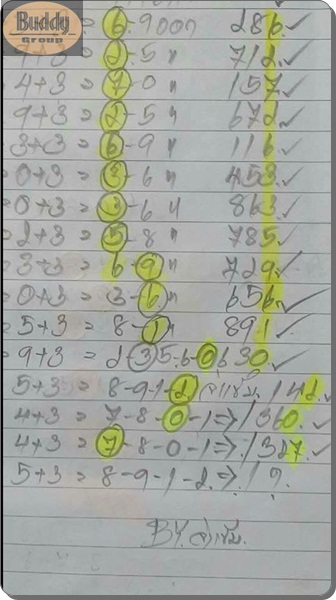 Buddy
Group
6-900ต 286 ✓
9+3 = 2-5 " 712 ✓
4+3 = 7-0 " 157 ✓
9+3 = 2-5 " 672 ✓
3+3 = 6-9 " 116 ✓
0+3 = 3-6 " 453 ✓
0+3 = 3-6 " 863 ✓
2+3 = 5-8 " 785 ✓
3+3 = 6-9 " 729 ✓
0+3 = 3-6 " 656 ✓
5+3 = 8-1 " 891 ✓
9+3 = 2-35-6-0 630 ✓
5+3 = 8-9-1-2 142 ✓
4+3 = 7-8-0-1 ⇒ / 360 ✓
4+3 = 7-8-0-1 ⇒ / 327 ✓
5+3 = 8-9-1-2 ⇒ / ?
BY.